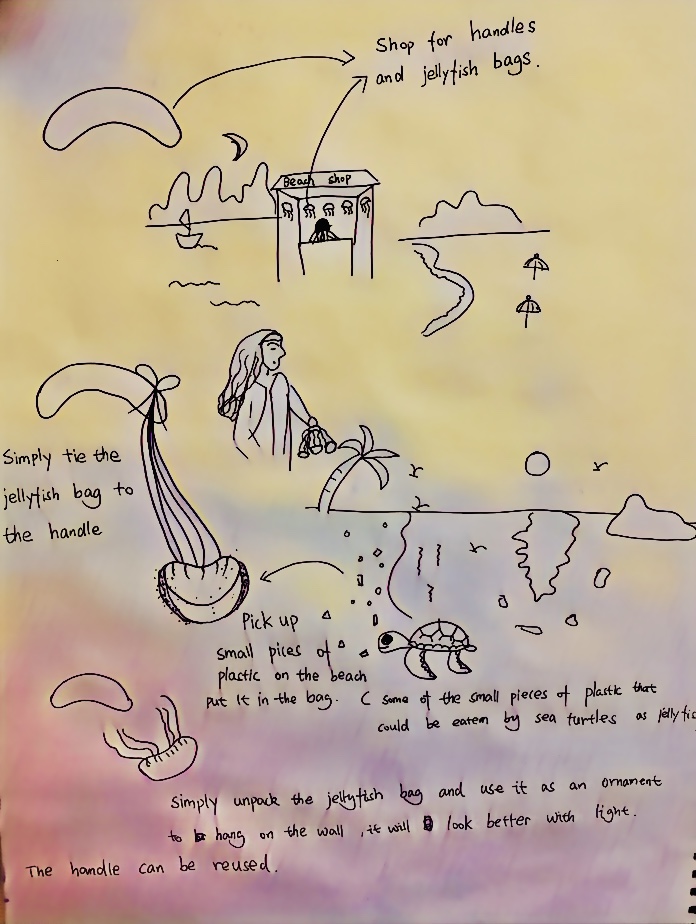 Shop for handles
and jellyfish bags.
Beach shop
Simply tie the
jellyfish bag to
the handle
Pick up
small pices of
plastic on the beach
put it in the bag. ( some of the small pieces of plastic that
could be eatem by sea turtles as jellyfis
Simply unpack the jellyfish bag and use it as an ornament
to hang on the wall , it will look better with light.
The handle can be reused.